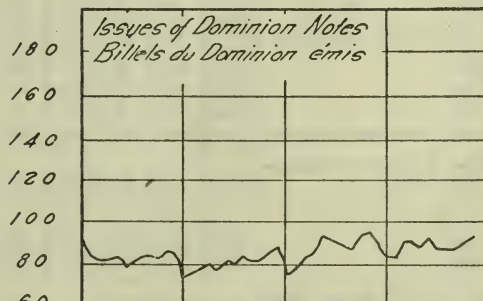 Issues of Dominion Notes
Billets du Dominion émis
180
160
140
120
100
80
60